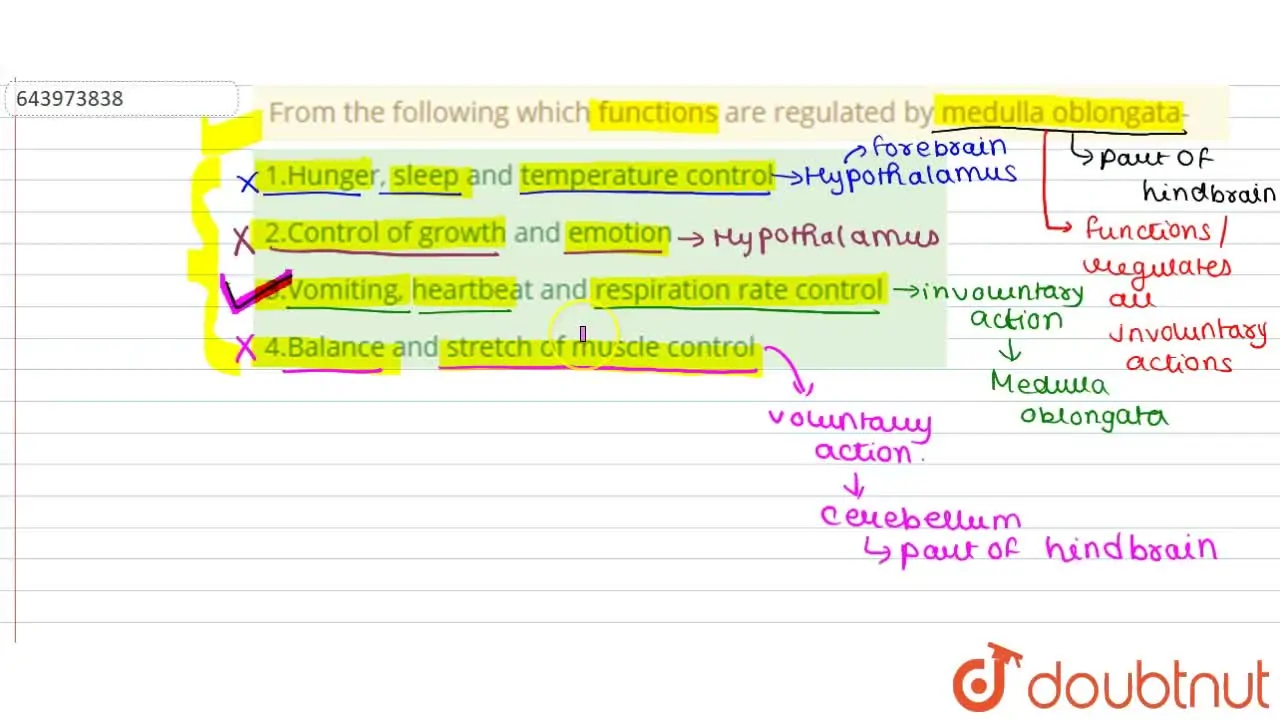 643973838
From the following which functions are regulated by medulla oblongata-
1.Hunger, sleep and temperature control → Hypothalamus
forebrain
→ part of
hindbrain
2.Control of growth and emotion → Hypothalamus
functions/
regulates
all
involuntary
actions
3.Vomiting, heartbeat and respiration rate control → involuntary
action
Medulla
oblongata
4.Balance and stretch of muscle control
voluntary
action.
cerebellum
↳ part of hindbrain
doubtnut